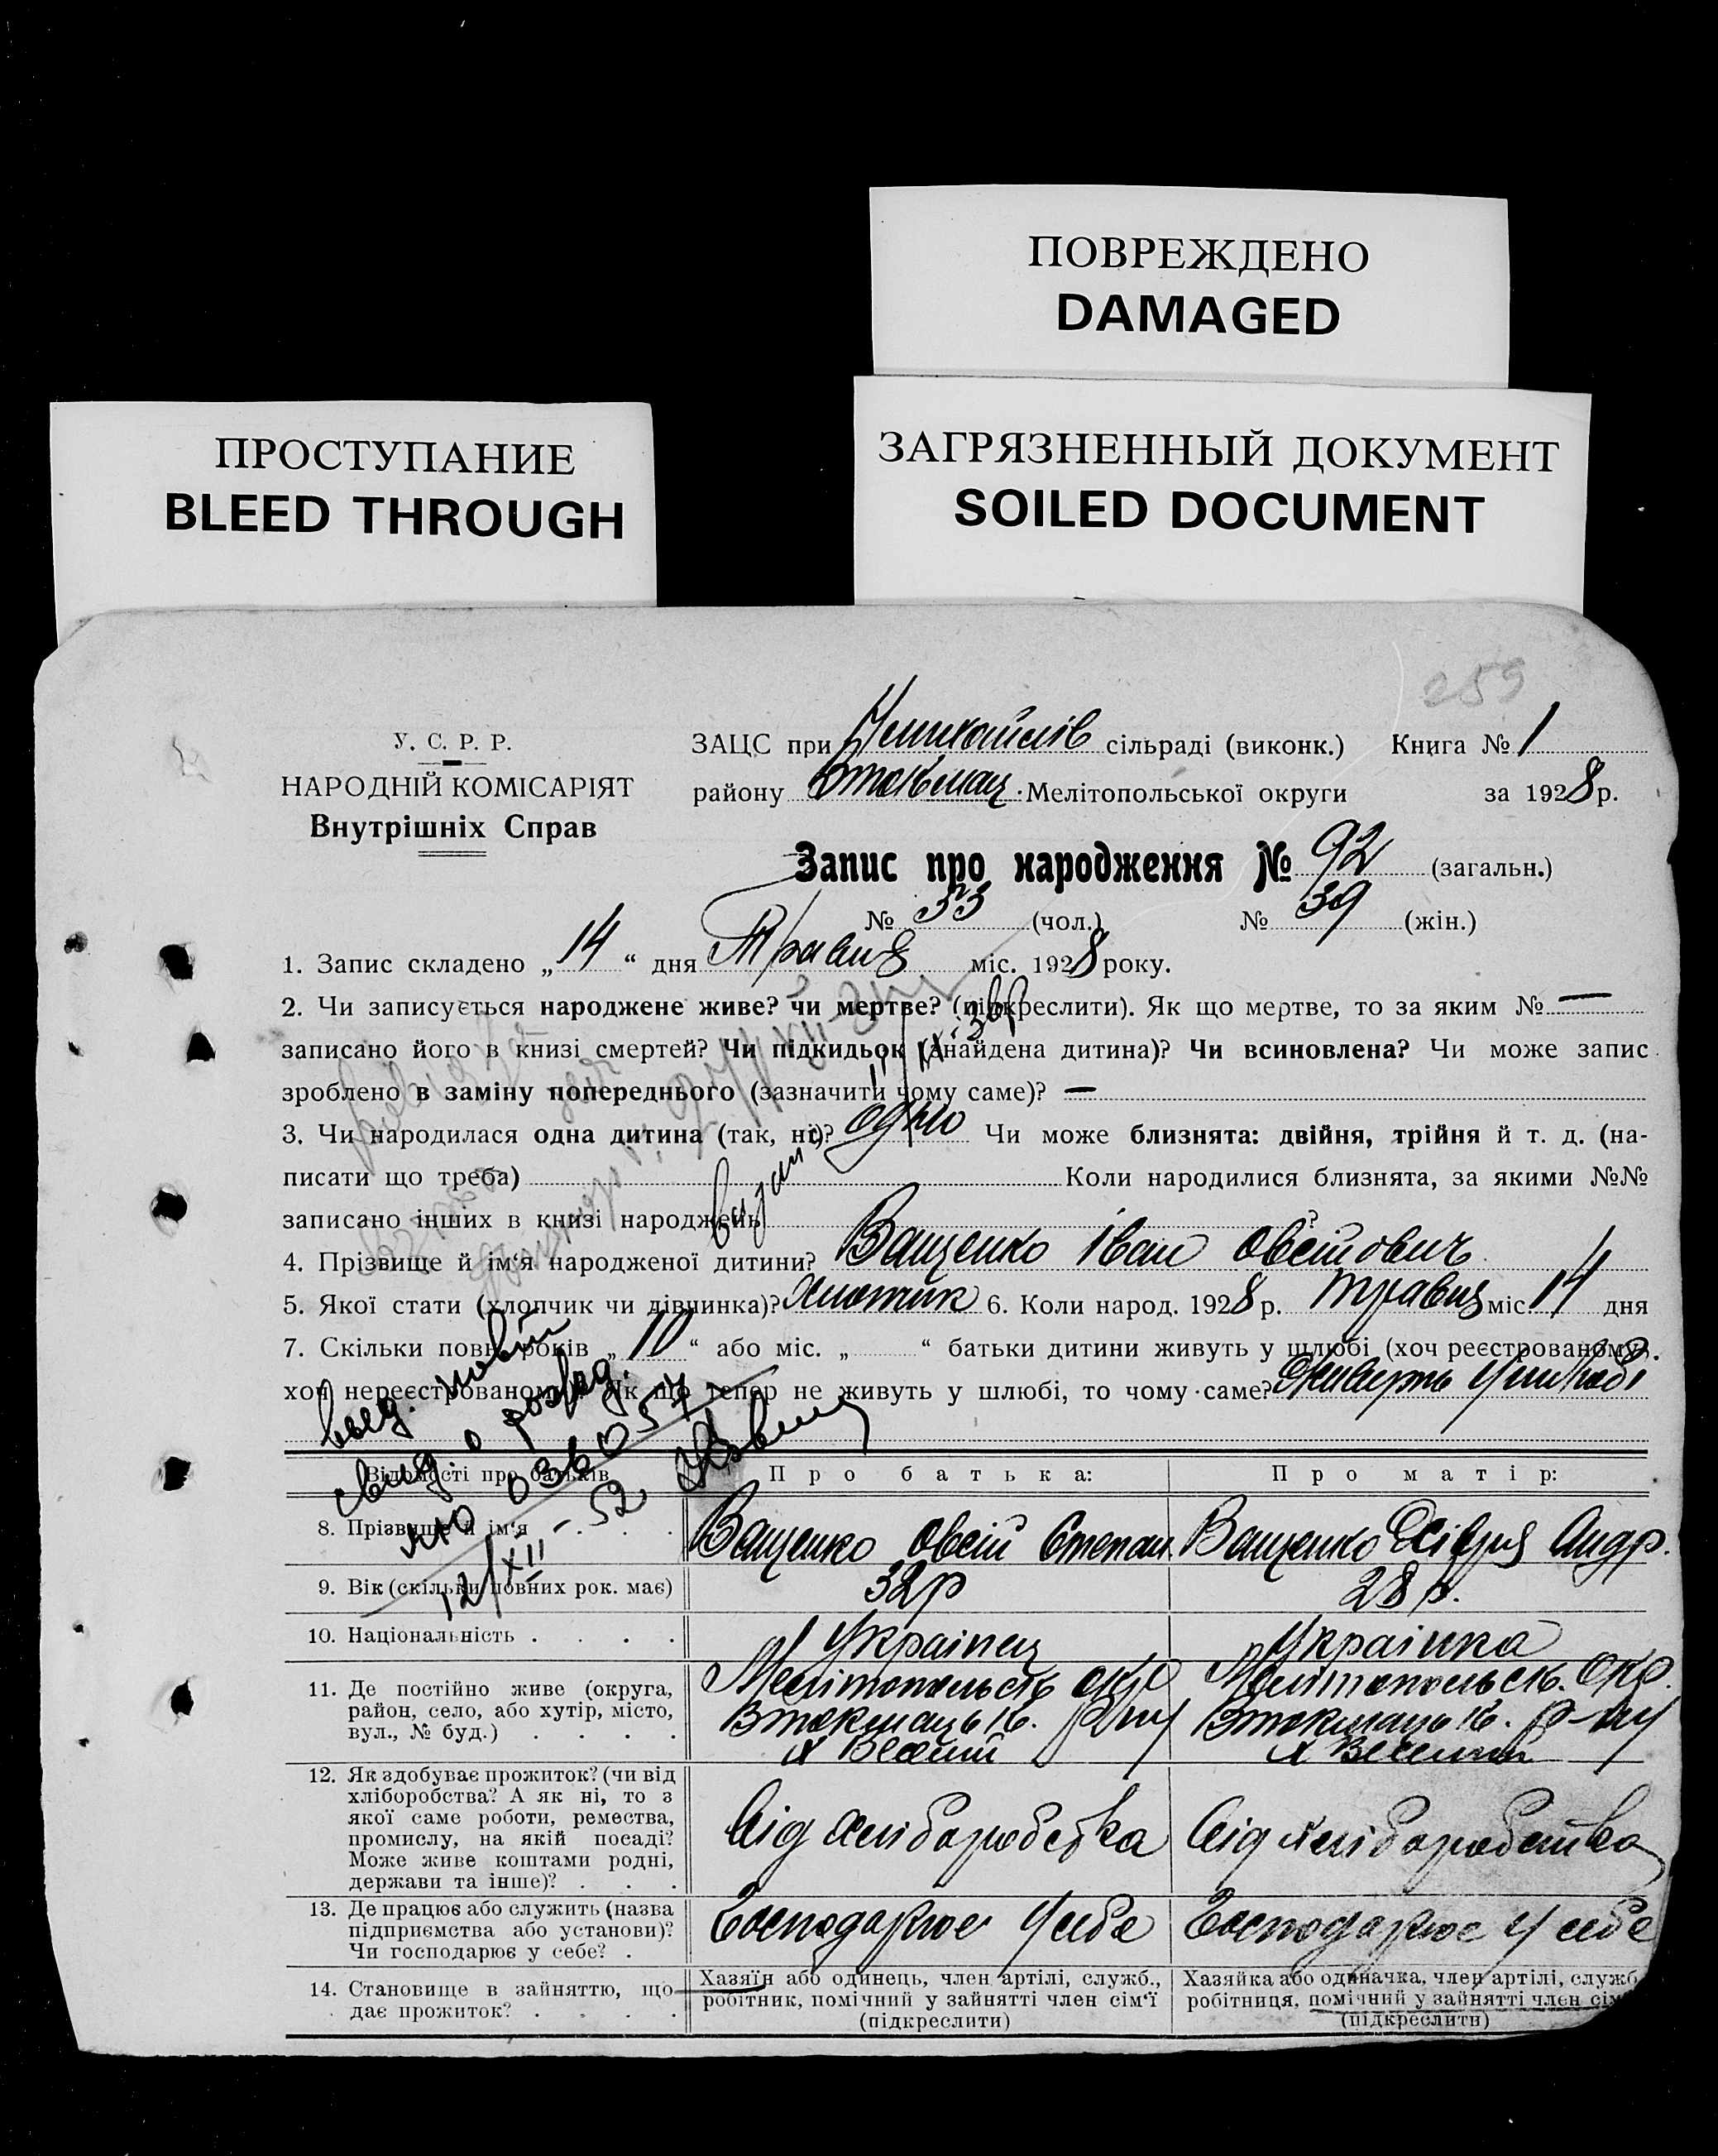 ПОВРЕЖДЕНО
DAMAGED
ПРОСТУПАНИЕ
BLEED THROUGH
ЗАГРЯЗНЕННЫЙ ДОКУМЕНТ
SOILED DOCUMENT
259
У. С. Р. Р.
НАРОДНІЙ КОМІСАРІЯТ
Внутрішніх Справ
ЗАЦС при сільраді (виконк.) Книга № 1
району Втокмац. Мелітопольської округи за 1928 р.
Запис про народження № 92 (загальн.)
№ 53 (чол.) № 39 (жін.)
1. Запис складено „14“ дня Травня міс. 1928 року.
2. Чи записується народжене живе? чи мертве? (підкреслити). Як що мертве, то за яким № —
записано його в книзі смертей? Чи підкидьок (знайдена дитина)? Чи всиновлена? Чи може запис
зроблено в заміну попереднього (зазначити чому саме)? —
3. Чи народилася одна дитина (так, ні)? одно Чи може близнята: двійня, трійня й т. д. (на-
писати що треба) Коли народилися близнята, за якими №№
записано інших в книзі народжень ?
4. Прізвище й ім‘я народженої дитини? Ващенко Іван Овсійович
5. Якої стати (хлопчик чи дівчинка)? 6. Коли народ. 1928 р. травня міс. 14 дня
7. Скільки повних років „10“ або міс. „ “ батьки дитини живуть у шлюбі (хоч реєстрованому,
хоч нереєстрованому)? Як що тепер не живуть у шлюбі, то чому саме? Живуть у шлюбі
свид. о рожд.
036057
12/XII - 52
Відомості про батьків
Про батька:
Про матір:
8. Прізвище й ім‘я . . .
Ващенко Овсій Степан.
Ващенко Хівря Андр.
9. Вік (скільки повних рок. має)
32 р
28 р.
10. Національність . . . .
Українец
Українка
11. Де постійно живе (округа,
район, село, або хутір, місто,
вул., № буд.) . . . .
Мелітопольськ окр
Втокмацьк. р-ну
х Веселий
Мелітопольськ. окр.
Втокмацьк. р-ну
х Веселий
12. Як здобуває прожиток? (чи від
хліборобства? А як ні, то з
якої саме роботи, ремества,
промислу, на якій посаді?
Може живе коштами родні,
держави та інше)? . . .
Від хліборобства
Від хліборобства
13. Де працює або служить (назва
підприємства або установи)?
Чи господарює у себе? .
Господарює у себе
Господарює у себе
14. Становище в зайняттю, що
дає прожиток? . . . .
Хазяїн або одинець, член артілі, служб.,
робітник, помічний у зайнятті член сім‘ї
(підкреслити)
Хазяйка або одиначка, член артілі, служб.
робітниця, помічний у зайнятті член сім
(підкреслити)